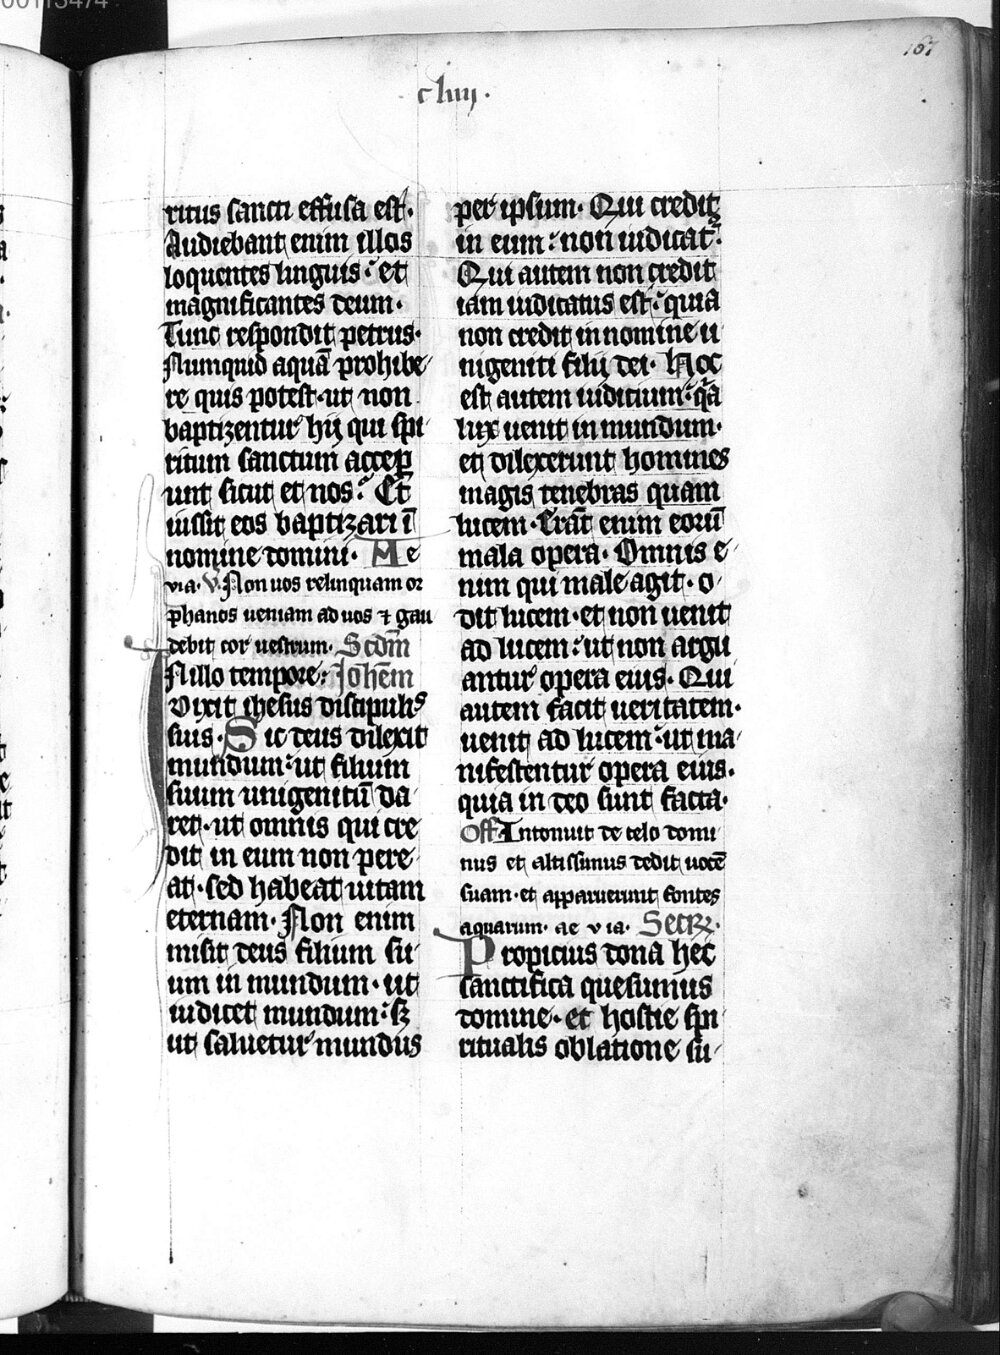 00113474
167
cliiij.
ritus sancti effusa est.
Audiebant enim illos
loquentes linguis: et
magnificantes deum.
Tunc respondit petrus.
Numquid aquā prohibe
re quis potest. ut non
baptizentur hij qui spi
ritum sanctum accep
unt sicut et nos: Et
iussit eos baptizari ī
nomine domini. Ae
via. V. Non vos relinquam or
phanos veniam ad vos ⁊ gau
debit cor vestrum. Scdm̄
In illo tempore: Johēm
Dixit ihesus discipulis
suis. Sic deus dilexit
mundum: ut filium
suum unigenitū da
ret. ut omnis qui cre
dit in eum non pere
at. sed habeat vitam
eternam. Non enim
misit deus filium su
um in mundum. ut
iudicet mundum: sꝫ
ut saluetur mundus
per ipsum. Qui credit
in eum: non iudicat̄.
Qui autem non credit
iam iudicatus est: quia
non credit in nomine u
nigeniti filij dei. Hoc
est autem iudicium: qa
lux venit in mundum.
et dilexerunt homines
magis tenebras quam
lucem. Erāt enim eorū
mala opera. Omnis e
nim qui male agit. o
dit lucem. et non venit
ad lucem: ut non argu
antur opera eius. Qui
autem facit veritatem.
venit ad lucem: ut ma
nifestentur opera eius.
quia in deo sunt facta.
Off. Intonuit de celo domi
nus et altissimus dedit vocē
suam. et apparuerunt fontes
aquarum. ae v ia. Secr̄.
Propicius dona hec
sanctifica quesumus
domine. et hostie spi
ritualis oblatione su